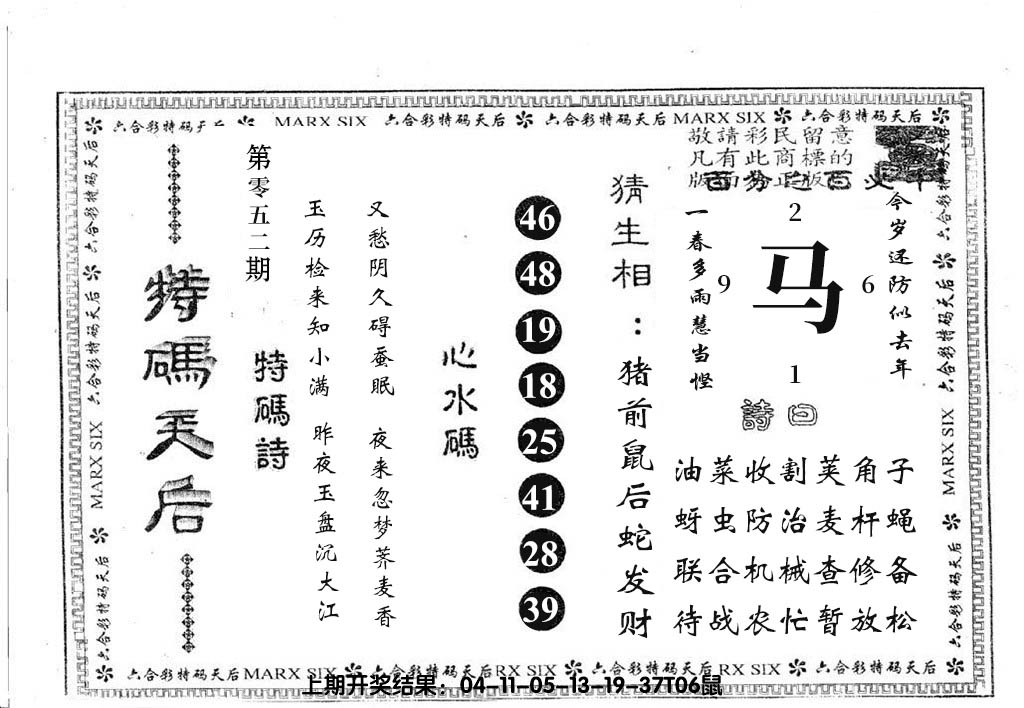 六合彩特码天后 MARX SIX 六合彩特码天后 六合彩特码天后 MARX SIX 六合彩特码天后
敬請彩民留意
凡有此商標的
版面為正版
特碼天后
第零五二期
特碼詩
玉历检来知小满 昨夜玉盘沉大江
又愁阴久碍蚕眠 夜来忽梦荞麦香
心水碼
46
48
19
18
25
41
28
39
猜生相：猪前鼠后蛇发财
一春多雨慧当悭
今岁还防似去年
2
9 马 6
1
詩曰
油菜收割荚角子
蚜虫防治麦杆蝇
联合机械查修备
待战农忙暂放松
六合彩特码天后
MARX SIX
六合彩特码天后
六合彩特码天后
MARX SIX
六合彩特码天后
六合彩特码天后 MARX SIX 六合彩特码天后 RX SIX 六合彩特码天后 RX SIX 六合彩特码天后
上期开奖结果：04-11-05-13-19-37T06鼠